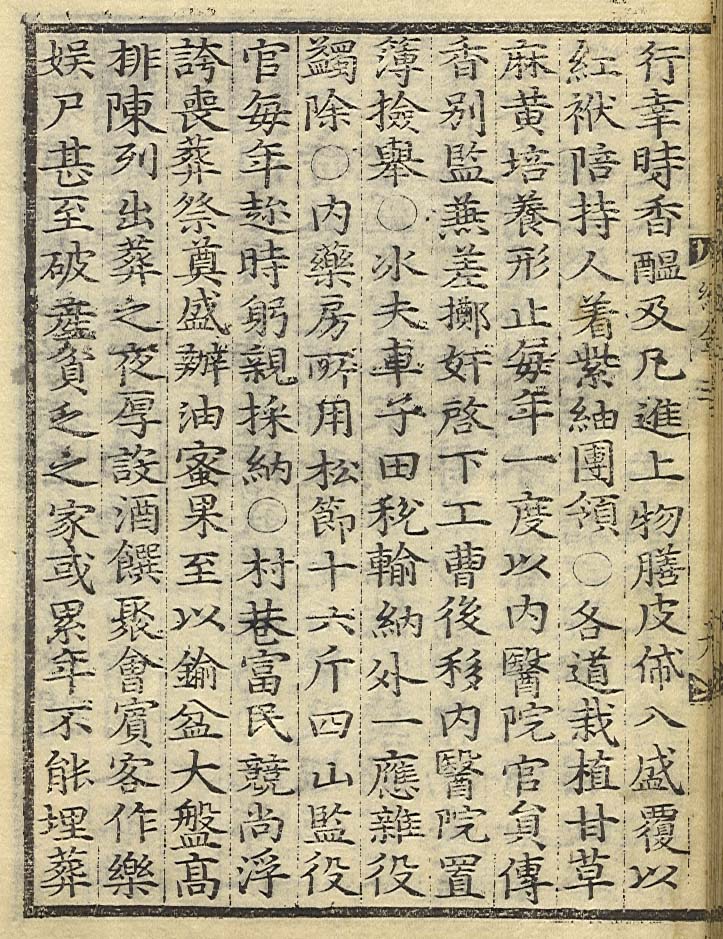 行幸時香醖及凡進上物膳皮俻入盛覆以
紅袱陪持人着紫紬團領○各道栽植甘草
麻黄培養形止每年一度以内醫院官貟傳
香别監兼差擲奸啓下工曹後移内醫院置
簿撿舉○氷夫車子田稅輸納外一應雜役
蠲除○内藥房所用松節十六斤四山監役
官每年趂時躬親採納○村巷富民競尚浮
誇喪葬祭奠盛辦油蜜果至以鍮盆大盤髙
排陳列出葬之夜厚設酒饌聚會賔客作樂
娱尸甚至破産貧乏之家或累年不能埋葬